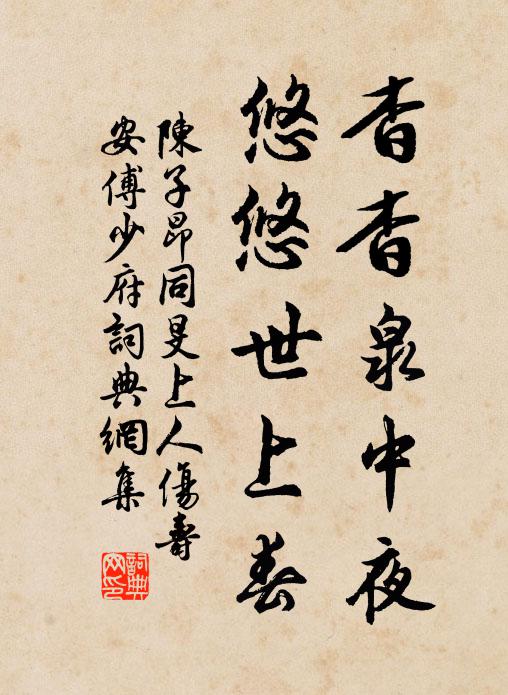 杳杳泉中夜
悠悠世上春
陳子昂同旻上人傷壽
安傅少府詞典網集
詞典网印